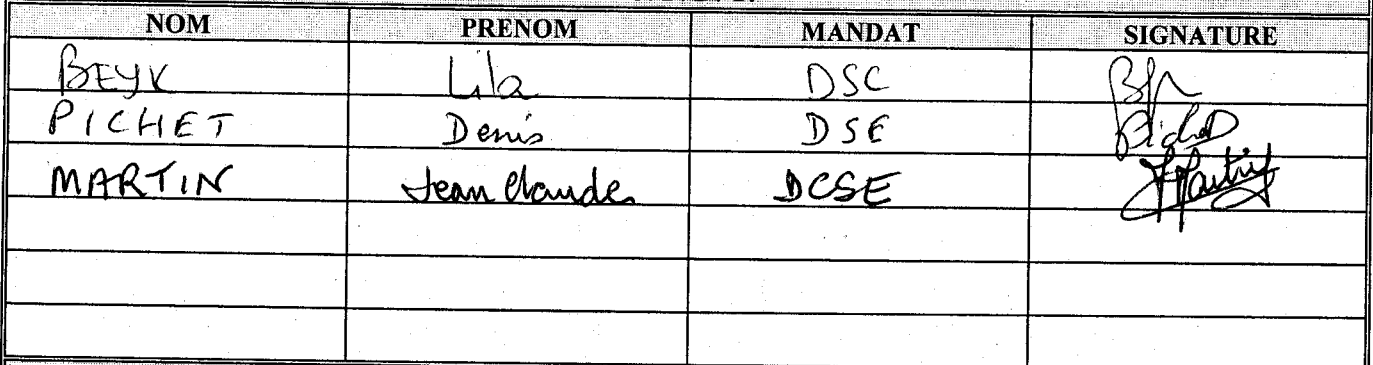 NOM PRENOM MANDAT SIGNATURE
BEYK Lila DSC
PICHET Denis DSE Pichet
MARTIN Jean Claude DCSE JMartin